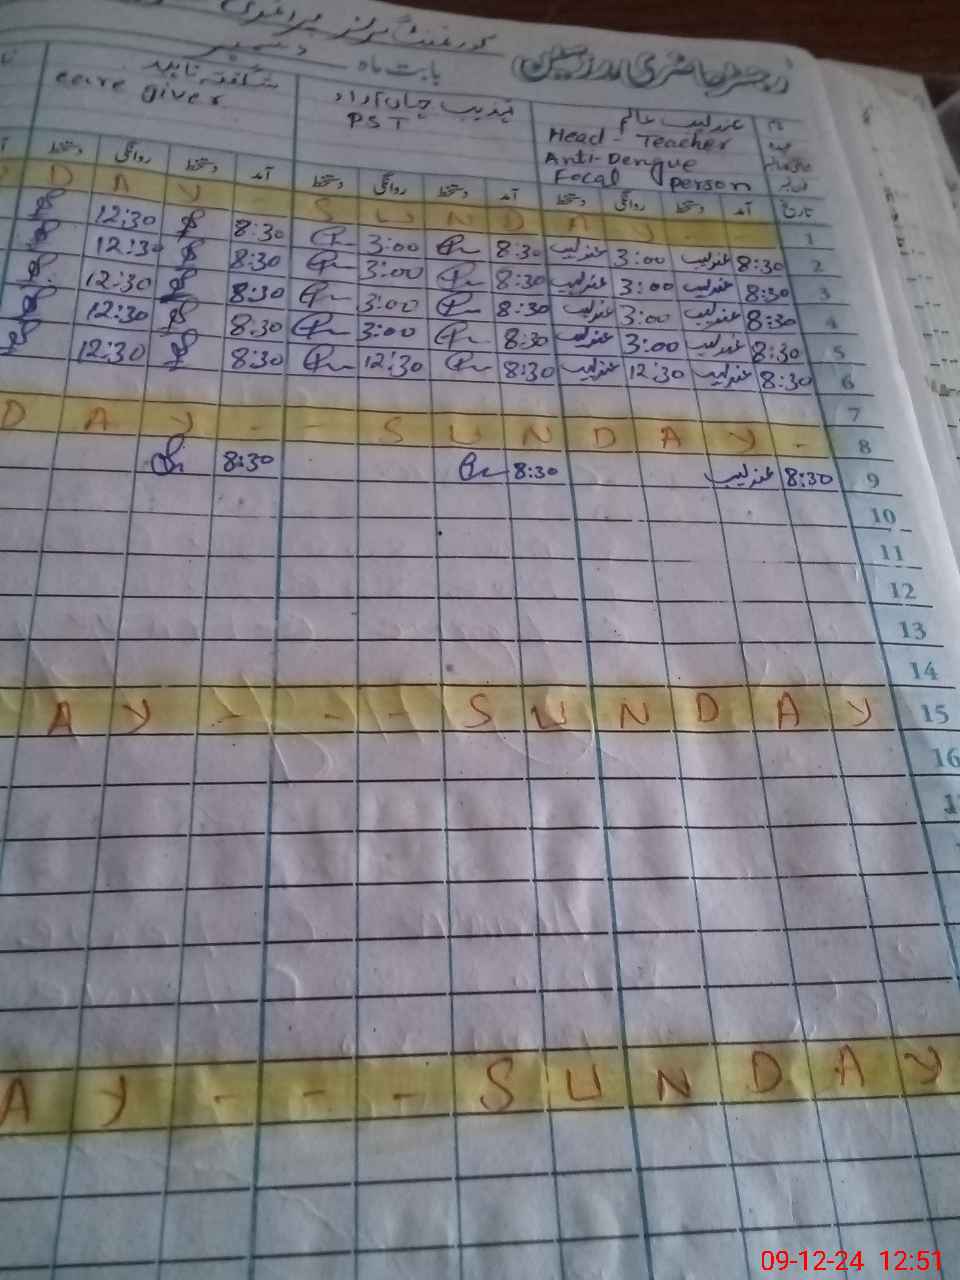 رجسٹر حاضری مدرسین گورنمنٹ گرلز پرائمری
بابت ماہ دسمبر
نام عندلیب عالم
عہدہ Head-Teacher PST care giver
Anti-Dengue
Focal person
تاریخ آمد دستخط روانگی دستخط آمد دستخط روانگی دستخط آمد دستخط روانگی دستخط
1 - - Y A D N U S - Y A D
2 8:30 عندلیب 3:00 عندلیب 8:30 3:00 8:30 12:30
3 8:30 عندلیب 3:00 عندلیب 8:30 3:00 8:30 12:30
4 8:30 عندلیب 3:00 عندلیب 8:30 3:00 8:30 12:30
5 8:30 عندلیب 3:00 عندلیب 8:30 3:00 8:30 12:30
6 8:30 عندلیب 12:30 عندلیب 8:30 12:30 8:30 12:30
7
D A Y - - S U N D A Y - 8
9 8:30 عندلیب 8:30 8:30
10
11
12
13
14
A Y - - - S U N D A Y 15
16
A Y - - - S U N D A Y
09-12-24 12:51